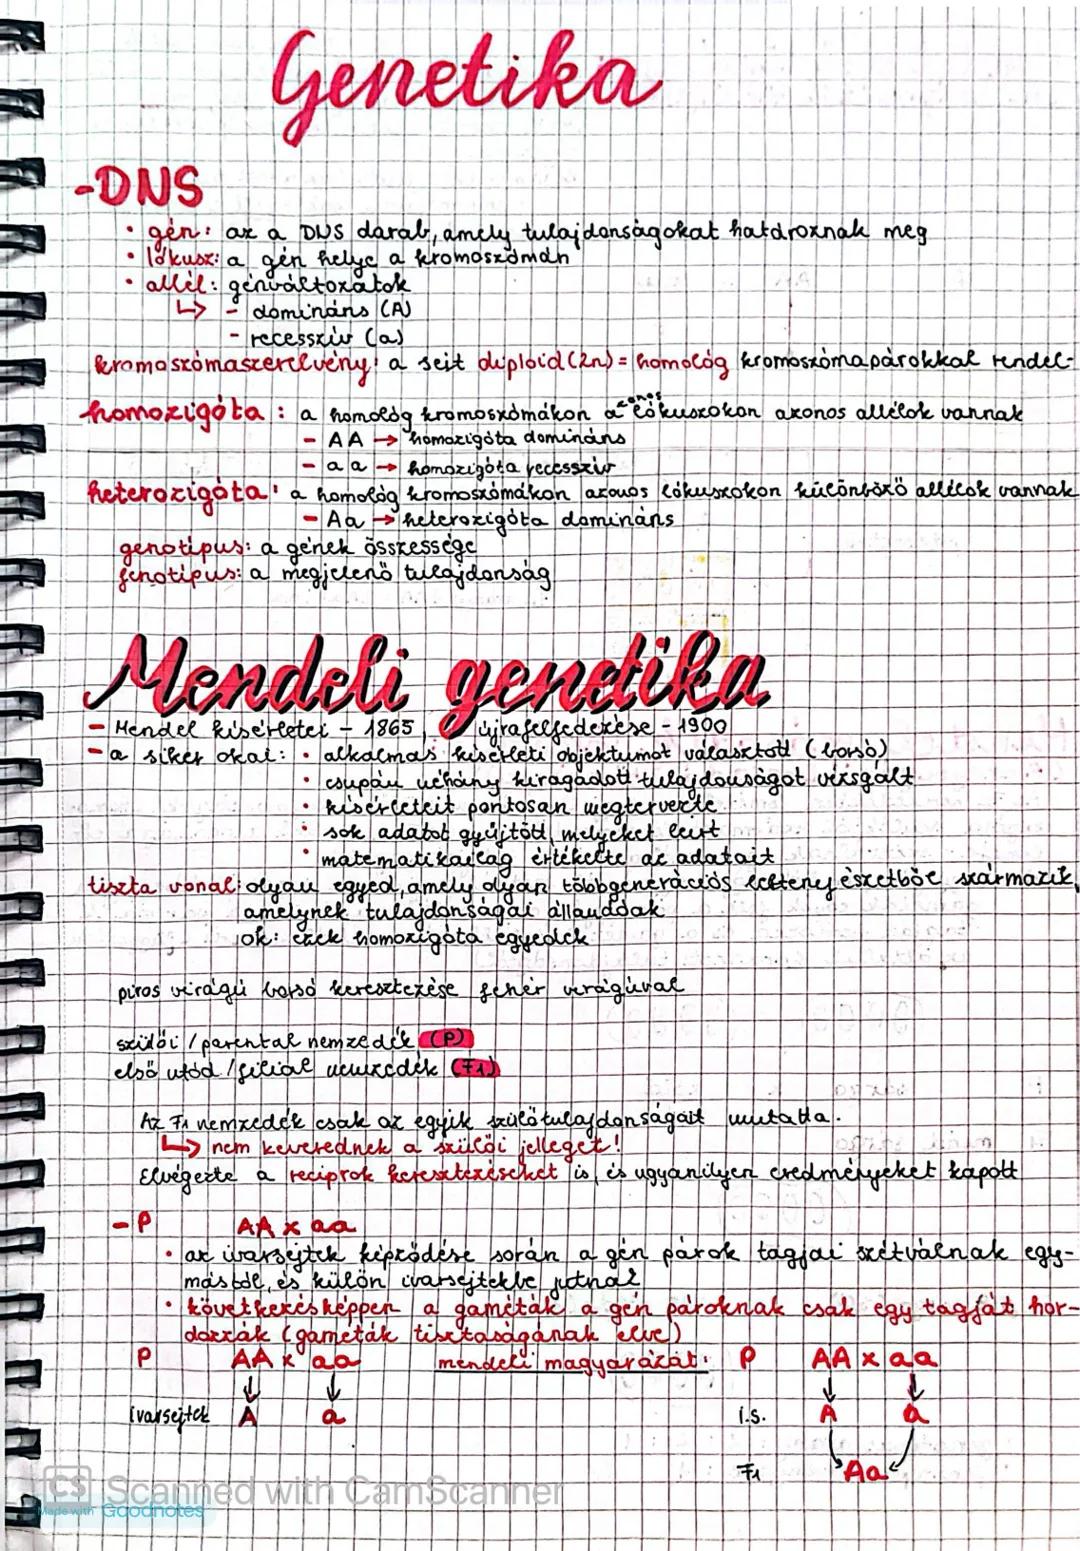 Genetika
-DNS
• gén: az a DNS darab, amely tulajdonságokat határoznak meg
• lókusz: a gén helye a kromoszómán
• allél: génváltozatok
↳ - domináns (A)
- recesszív (a)
kromoszómaszerelvény: a sejt diploid (2n) = homológ kromoszómapárokkal rendel-
homozigóta: a homológ kromoszómákon azonos lókuszokon azonos allélok vannak
- AA → homozigóta domináns
- aa → homozigóta recesszív
heterozigóta: a homológ kromoszómákon azonos lókuszokon különböző allélok vannak
- Aa → heterozigóta domináns
genotípus: a gének összessége
fenotípus: a megjelenő tulajdonság
Mendeli genetika
- Mendel kísérletei - 1865, újrafelfedezése - 1900
- a siker okai: • alkalmas kísérleti objektumot választott (borsó)
• csupán néhány kiragadott tulajdonságot vizsgált
• kísérleteit pontosan megtervezte
• sok adatot gyűjtött, melyeket leírt
• matematikailag értékelte az adatait
tiszta vonal: olyan egyed, amely olyan többgenerációs beltenyészetből származik,
amelynek tulajdonságai állandóak
ok: ezek homozigóta egyedek
piros virágú borsó keresztezése fehér virágúval
szülői / parental nemzedék (P)
első utód / filiál nemzedék (F1)
Az F1 nemzedék csak az egyik szülő tulajdonságait mutatta.
↳ nem keverednek a szülői jelleget!
Elvégezte a reciprok keresztezéseket is, és ugyanilyen eredményeket kapott
- P AA x aa
• az ivarsejtek képződése során a gén párok tagjai szétválnak egy-
mástól, és külön ivarsejtekbe jutnak
• következésképpen a gaméták a gén pároknak csak egy tagját hor-
dozzák (gaméták tisztaságának elve)
P AA x aa mendeli magyarázat: P AA x aa
↓ ↓ ↓ ↓
ivarsejtek A a i.s. A a
F1 Aa
CS Scanned with CamScanner
Made with Goodnotes